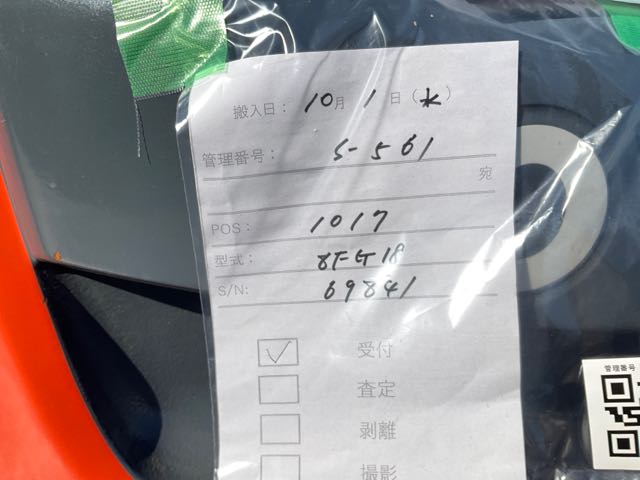 搬入日： 10月 1日（水）
管理番号： S-561
宛
POS： 1017
型式： 8FG18
S/N: 69841
☑ 受付
☐ 査定
☐ 剥離
☐ 撮影
管理番号